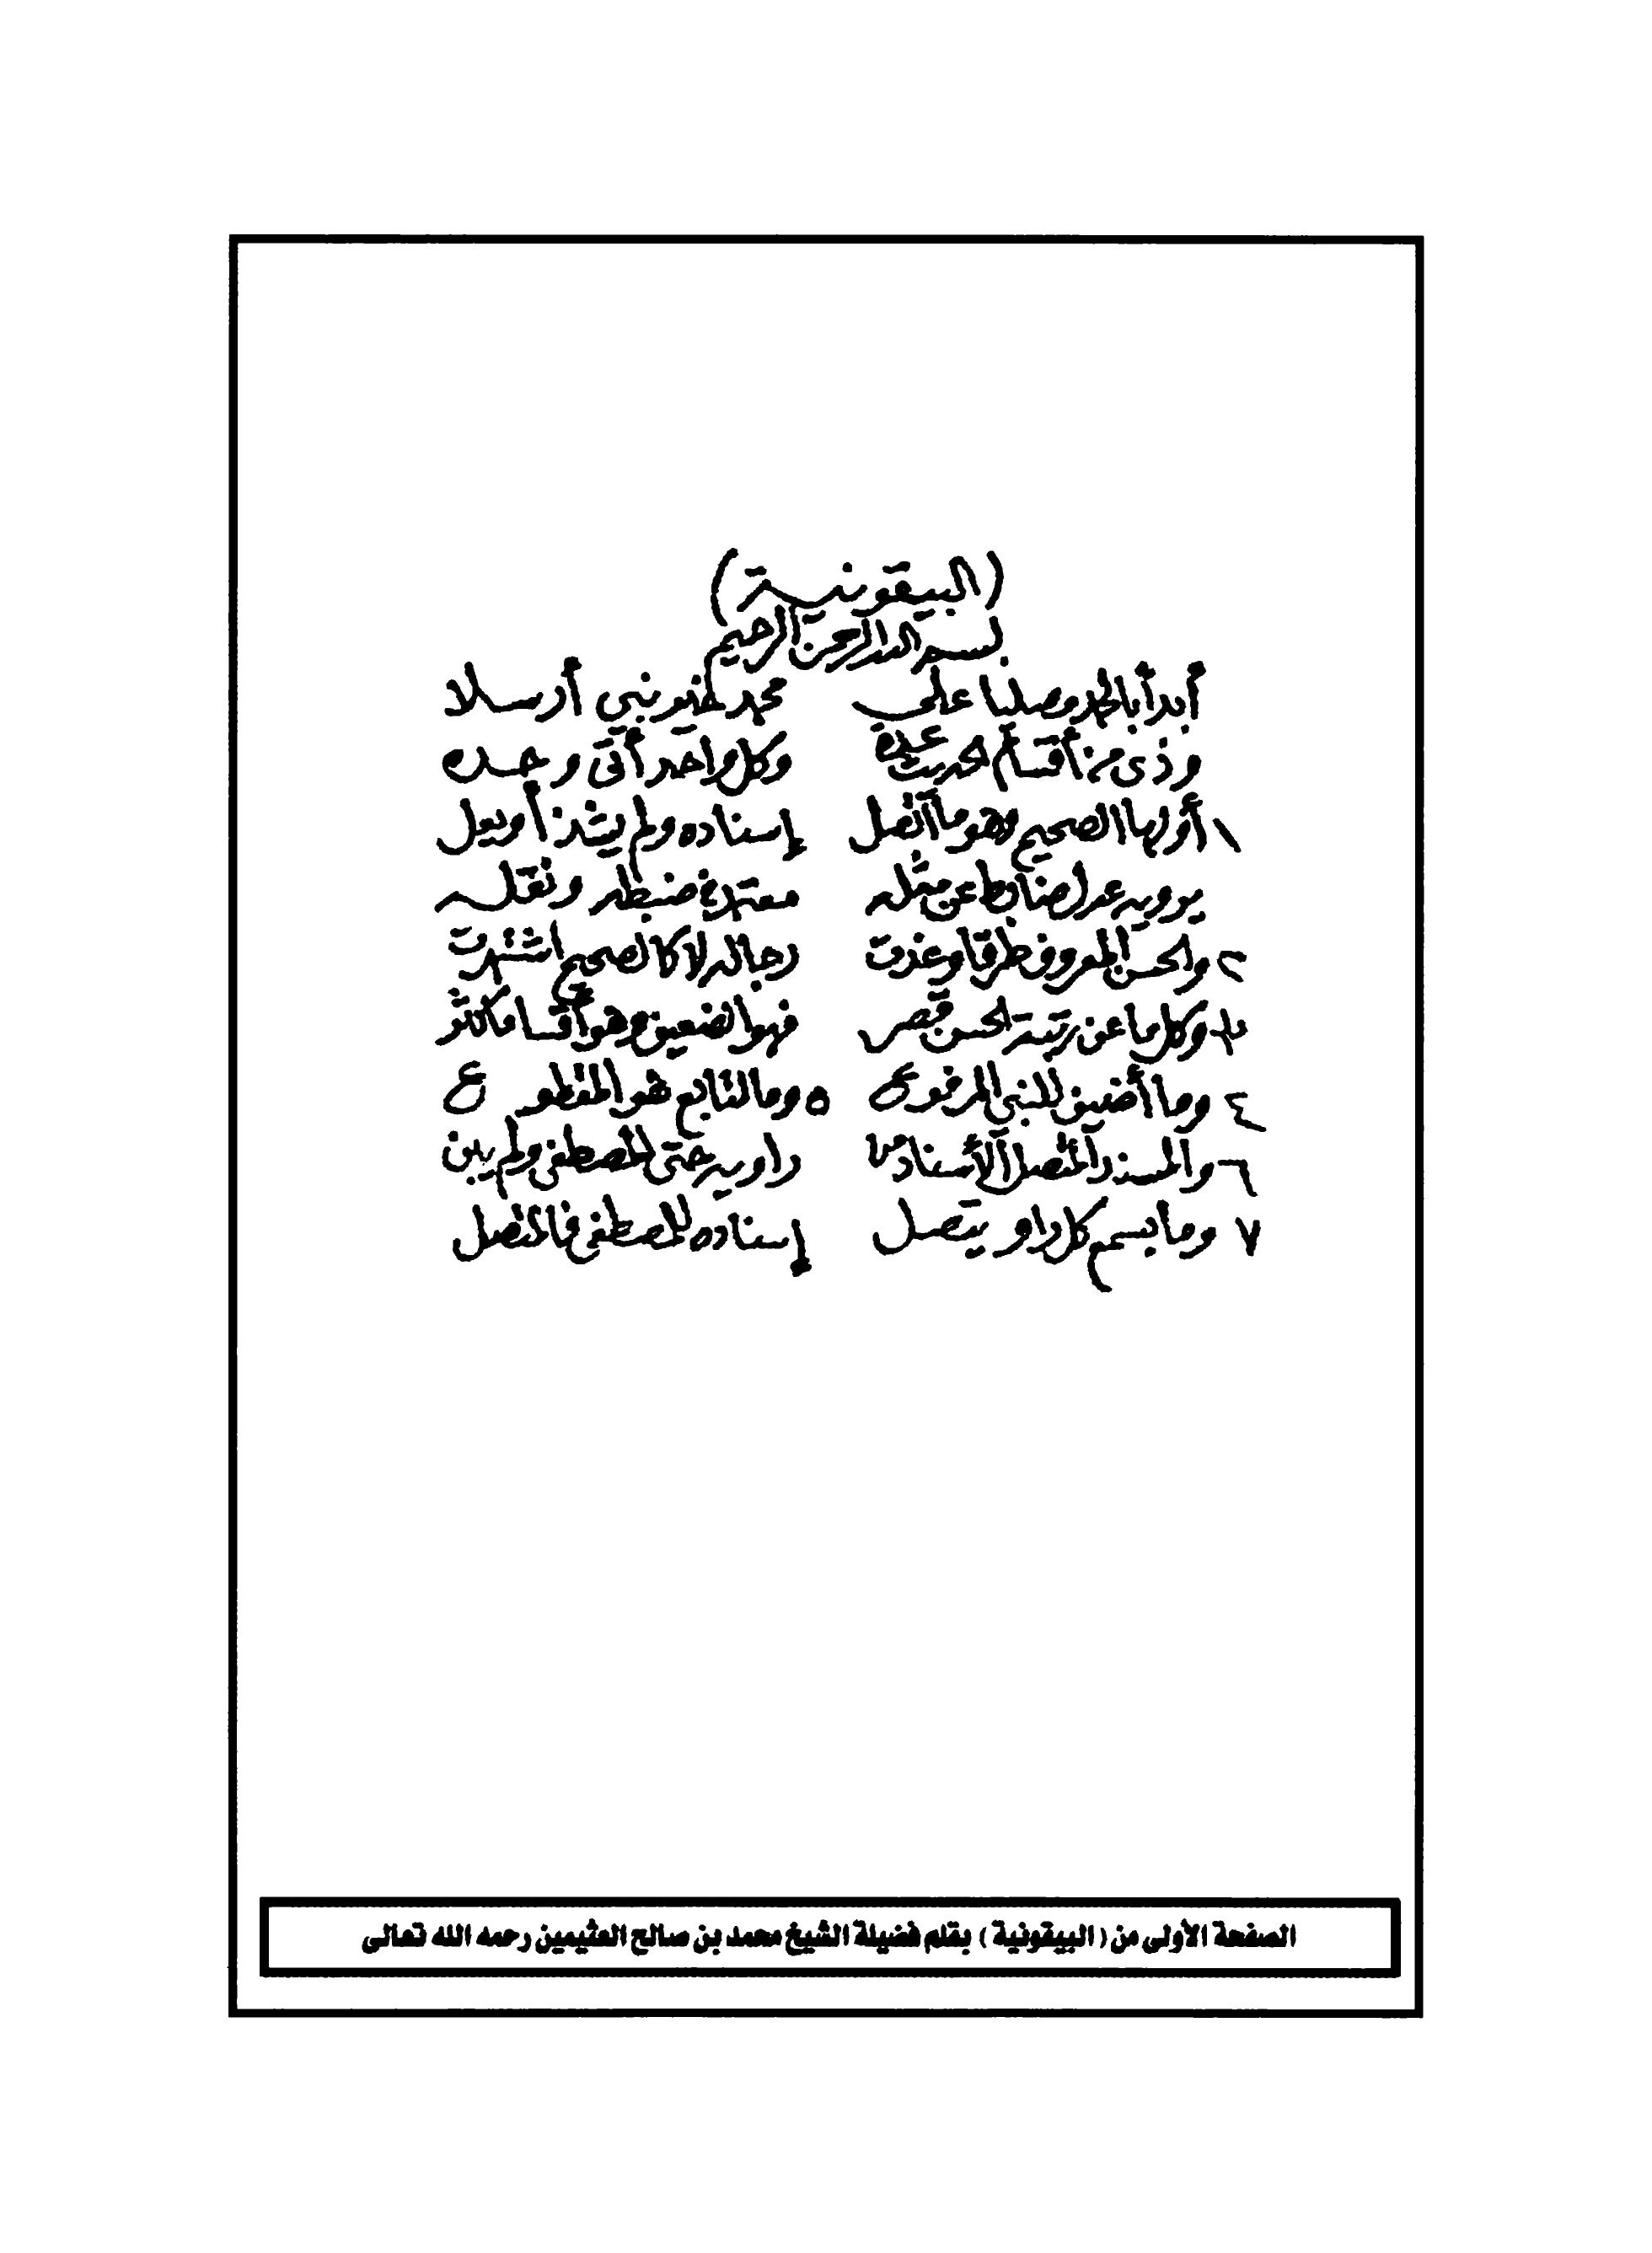 (البيقونية)
بسم الله الرحمن الرحيم
أبدأ بالحمد مصليا على محمد خير نبي أرسلا
وذي من أقسام الحديث عدة وكل واحد أتى وحده
١ أولها الصحيح وهو ما اتصل إسناده ولم يشذ أو يعل
يرويه عدل ضابط عن مثله معتمد في ضبطه ونقله
٢ والحسن المعروف طرقا وغدت رجاله لا كالصحيح اشتهرت
٣ وكل ما عن رتبة الحسن قصر فهو الضعيف وهو أقساما كثر
٤ وما أضيف للنبي المرفوع ٥ وما لتابع هو المقطوع
٦ والمسند المتصل الإسناد من راويه حتى المصطفى ولم يبن
٧ وما بسمع كل راو يتصل إسناده للمصطفى فالمتصل
الصفحة الأولى من (البيقونية) بقلم فضيلة الشيخ محمد بن صالح العثيمين رحمه الله تعالى